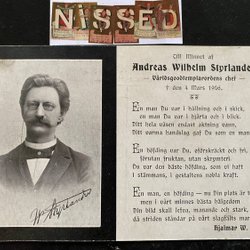 NiSSED
Till Minnet af
Andreas Wilhelm Styrlander
Världsgodtemplarordens chef
† den 4 Mars 1906.
En man Du var i hållning och i skick,
en man Du var i hjärta och i blick.
Ditt hela väsen endast aktning vann,
Ditt varma handslag gaf Du som en man.
En höfding, öfverkraftstor och fri,
förutan fruktan, utan skrymteri
Du var den bäste höfding, som vi haft
i stämmans, i gestaltens nobla kraft.
En man, en höfding — nu Din plats är t
men i vårt minnes bästa hälgedom
Din bild skall lefva, manande och stark,
då striden ständar på vårt slagfälts mark
Hjalmar W
Wm Styrlander